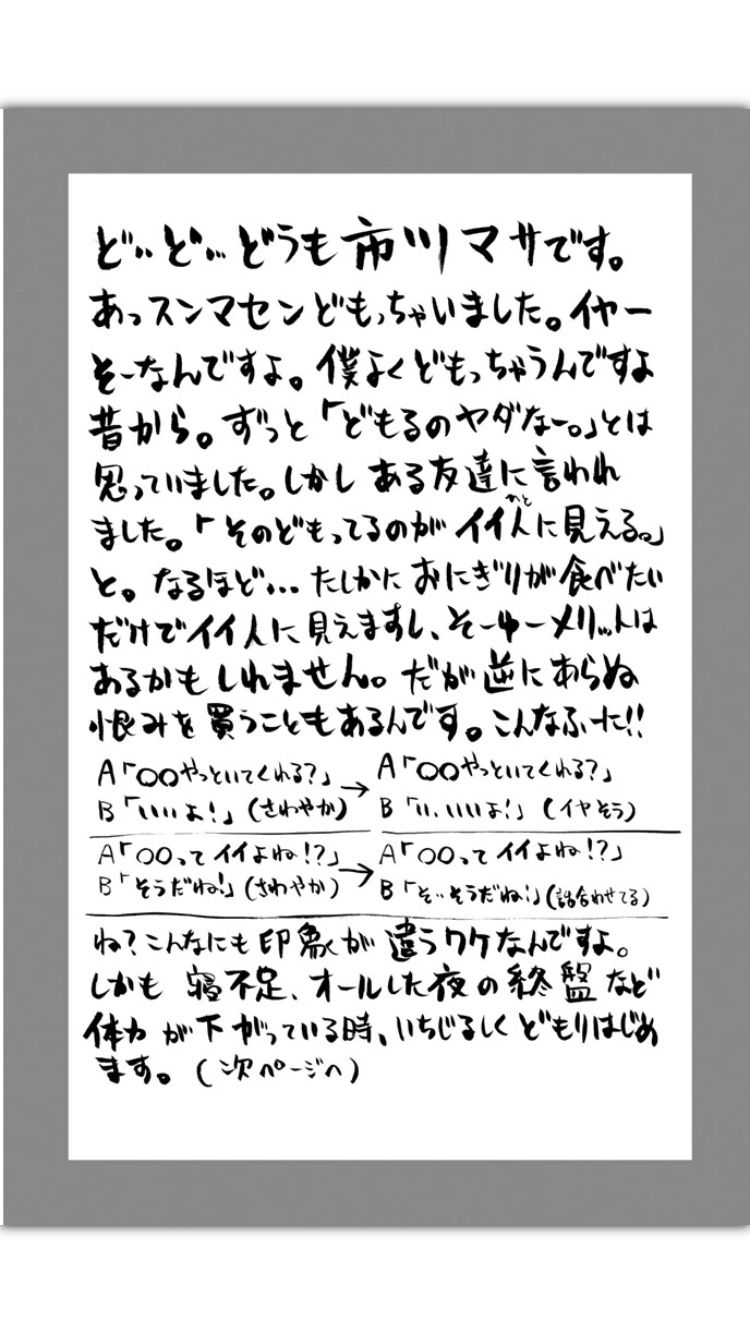 ど‥ど…どうも市川マサです。
あっスンマセンどもっちゃいました。イヤー
そーなんですよ。僕よくどもっちゃうんですよ
昔から。ずっと「どもるのヤダなー。」とは
思っていました。しかしある友達に言われ
ました。「そのどもってるのがイイ人(ひと)に見える。」
と。なるほど…たしかにおにぎりが食べたい
だけでイイ人に見えますし、そーゆーメリットは
あるかもしれません。だが逆にあらぬ
恨みを買うこともあるんです。こんなふーに!!
A「〇〇やっといてくれる?」→A「〇〇やっといてくれる?」
B「いいよ!」(さわやか) B「い、いいよ!」(イヤそう)
A「〇〇ってイイよね!?」→A「〇〇ってイイよね!?」
B「そうだね!」(さわやか) B「そ‥そうだね!」(話合わせてる)
ね?こんなにも印象が違うワケなんですよ。
しかも寝不足、オールした夜の終盤など
体力が下がっている時、いちじるしくどもりはじめ
ます。(次ページへ)